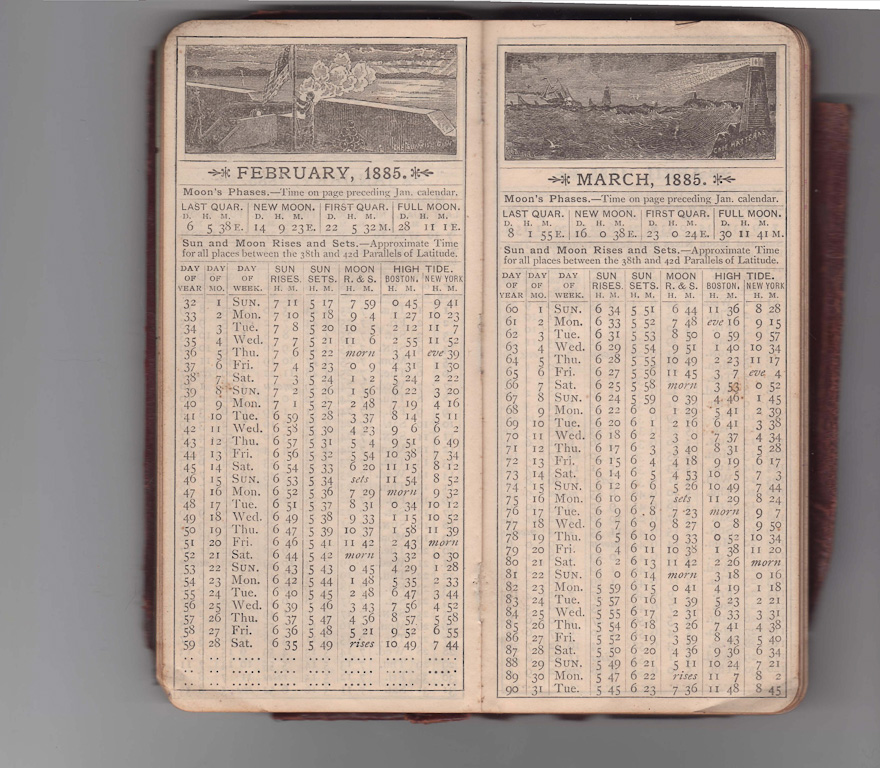 FEBRUARY, 1885.
Moon's Phases.—Time on page preceding Jan. calendar.
LAST QUAR. NEW MOON. FIRST QUAR. FULL MOON.
D. H. M. D. H. M. D. H. M. D. H. M.
6 5 38 E. 14 9 23 E. 22 5 32 M. 28 11 1 E.
Sun and Moon Rises and Sets.—Approximate Time
for all places between the 38th and 42d Parallels of Latitude.
DAY DAY DAY SUN SUN MOON HIGH TIDE.
OF OF OF RISES. SETS. R. & S. BOSTON. NEW YORK
YEAR MO. WEEK. H. M. H. M. H. M. H. M. H. M.
32 1 SUN. 7 11 5 17 7 59 0 45 9 41
33 2 Mon. 7 10 5 18 9 4 1 27 10 23
34 3 Tue. 7 8 5 20 10 5 2 12 11 7
35 4 Wed. 7 7 5 21 11 6 2 55 11 52
36 5 Thu. 7 6 5 22 morn 3 41 eve 39
37 6 Fri. 7 4 5 23 0 9 4 31 1 30
38 7 Sat. 7 3 5 24 1 2 5 24 2 22
39 8 SUN. 7 2 5 26 1 56 6 22 3 20
40 9 Mon. 7 1 5 27 2 48 7 19 4 16
41 10 Tue. 6 59 5 28 3 37 8 14 5 11
42 11 Wed. 6 58 5 30 4 23 9 6 6 2
43 12 Thu. 6 57 5 31 5 4 9 51 6 49
44 13 Fri. 6 56 5 32 5 54 10 38 7 34
45 14 Sat. 6 54 5 33 6 20 11 15 8 12
46 15 SUN. 6 53 5 34 sets 11 54 8 52
47 16 Mon. 6 52 5 36 7 29 morn 9 32
48 17 Tue. 6 51 5 37 8 31 0 34 10 12
49 18 Wed. 6 49 5 38 9 33 1 15 10 52
50 19 Thu. 6 47 5 39 10 37 1 58 11 39
51 20 Fri. 6 46 5 41 11 42 2 43 morn
52 21 Sat. 6 44 5 42 morn 3 32 0 30
53 22 SUN. 6 43 5 43 0 45 4 29 1 28
54 23 Mon. 6 42 5 44 1 48 5 35 2 33
55 24 Tue. 6 40 5 45 2 48 6 47 3 44
56 25 Wed. 6 39 5 46 3 43 7 56 4 52
57 26 Thu. 6 37 5 47 4 36 8 57 5 58
58 27 Fri. 6 36 5 48 5 21 9 52 6 55
59 28 Sat. 6 35 5 49 rises 10 49 7 44
CAPE HATTERAS
MARCH, 1885.
Moon's Phases.—Time on page preceding Jan. calendar.
LAST QUAR. NEW MOON. FIRST QUAR. FULL MOON.
D. H. M. D. H. M. D. H. M. D. H. M.
8 1 55 E. 16 0 38 E. 23 0 24 E. 30 11 41 M.
Sun and Moon Rises and Sets.—Approximate Time
for all places between the 38th and 42d Parallels of Latitude.
DAY DAY DAY SUN SUN MOON HIGH TIDE.
OF OF OF RISES. SETS. R. & S. BOSTON. NEW YORK
YEAR MO. WEEK. H. M. H. M. H. M. H. M. H. M.
60 1 SUN. 6 34 5 51 6 44 11 36 8 28
61 2 Mon. 6 33 5 52 7 48 eve 16 9 15
62 3 Tue. 6 31 5 53 8 50 0 59 9 57
63 4 Wed. 6 29 5 54 9 51 1 40 10 34
64 5 Thu. 6 28 5 55 10 49 2 23 11 17
65 6 Fri. 6 27 5 56 11 45 3 7 eve 4
66 7 Sat. 6 25 5 58 morn 3 53 0 52
67 8 SUN. 6 24 5 59 0 39 4 46 1 45
68 9 Mon. 6 22 6 0 1 29 5 41 2 39
69 10 Tue. 6 20 6 1 2 16 6 41 3 38
70 11 Wed. 6 18 6 2 3 0 7 37 4 34
71 12 Thu. 6 17 6 3 3 40 8 31 5 28
72 13 Fri. 6 15 6 4 4 18 9 19 6 17
73 14 Sat. 6 14 6 5 4 53 10 5 7 3
74 15 SUN. 6 12 6 6 5 26 10 49 7 44
75 16 Mon. 6 10 6 7 sets 11 29 8 24
76 17 Tue. 6 9 6 8 7 23 morn 9 7
77 18 Wed. 6 7 6 9 8 27 0 8 9 50
78 19 Thu. 6 5 6 10 9 33 0 52 10 34
79 20 Fri. 6 4 6 11 10 38 1 38 11 20
80 21 Sat. 6 2 6 13 11 42 2 26 morn
81 22 SUN. 6 0 6 14 morn 3 18 0 16
82 23 Mon. 5 59 6 15 0 41 4 19 1 18
83 24 Tue. 5 57 6 16 1 39 5 23 2 21
84 25 Wed. 5 55 6 17 2 31 6 33 3 31
85 26 Thu. 5 54 6 18 3 26 7 41 4 38
86 27 Fri. 5 52 6 19 3 59 8 43 5 40
87 28 Sat. 5 50 6 20 4 36 9 36 6 34
88 29 SUN. 5 49 6 21 5 11 10 24 7 21
89 30 Mon. 5 47 6 22 rises 11 7 8 2
90 31 Tue. 5 45 6 23 7 36 11 48 8 45